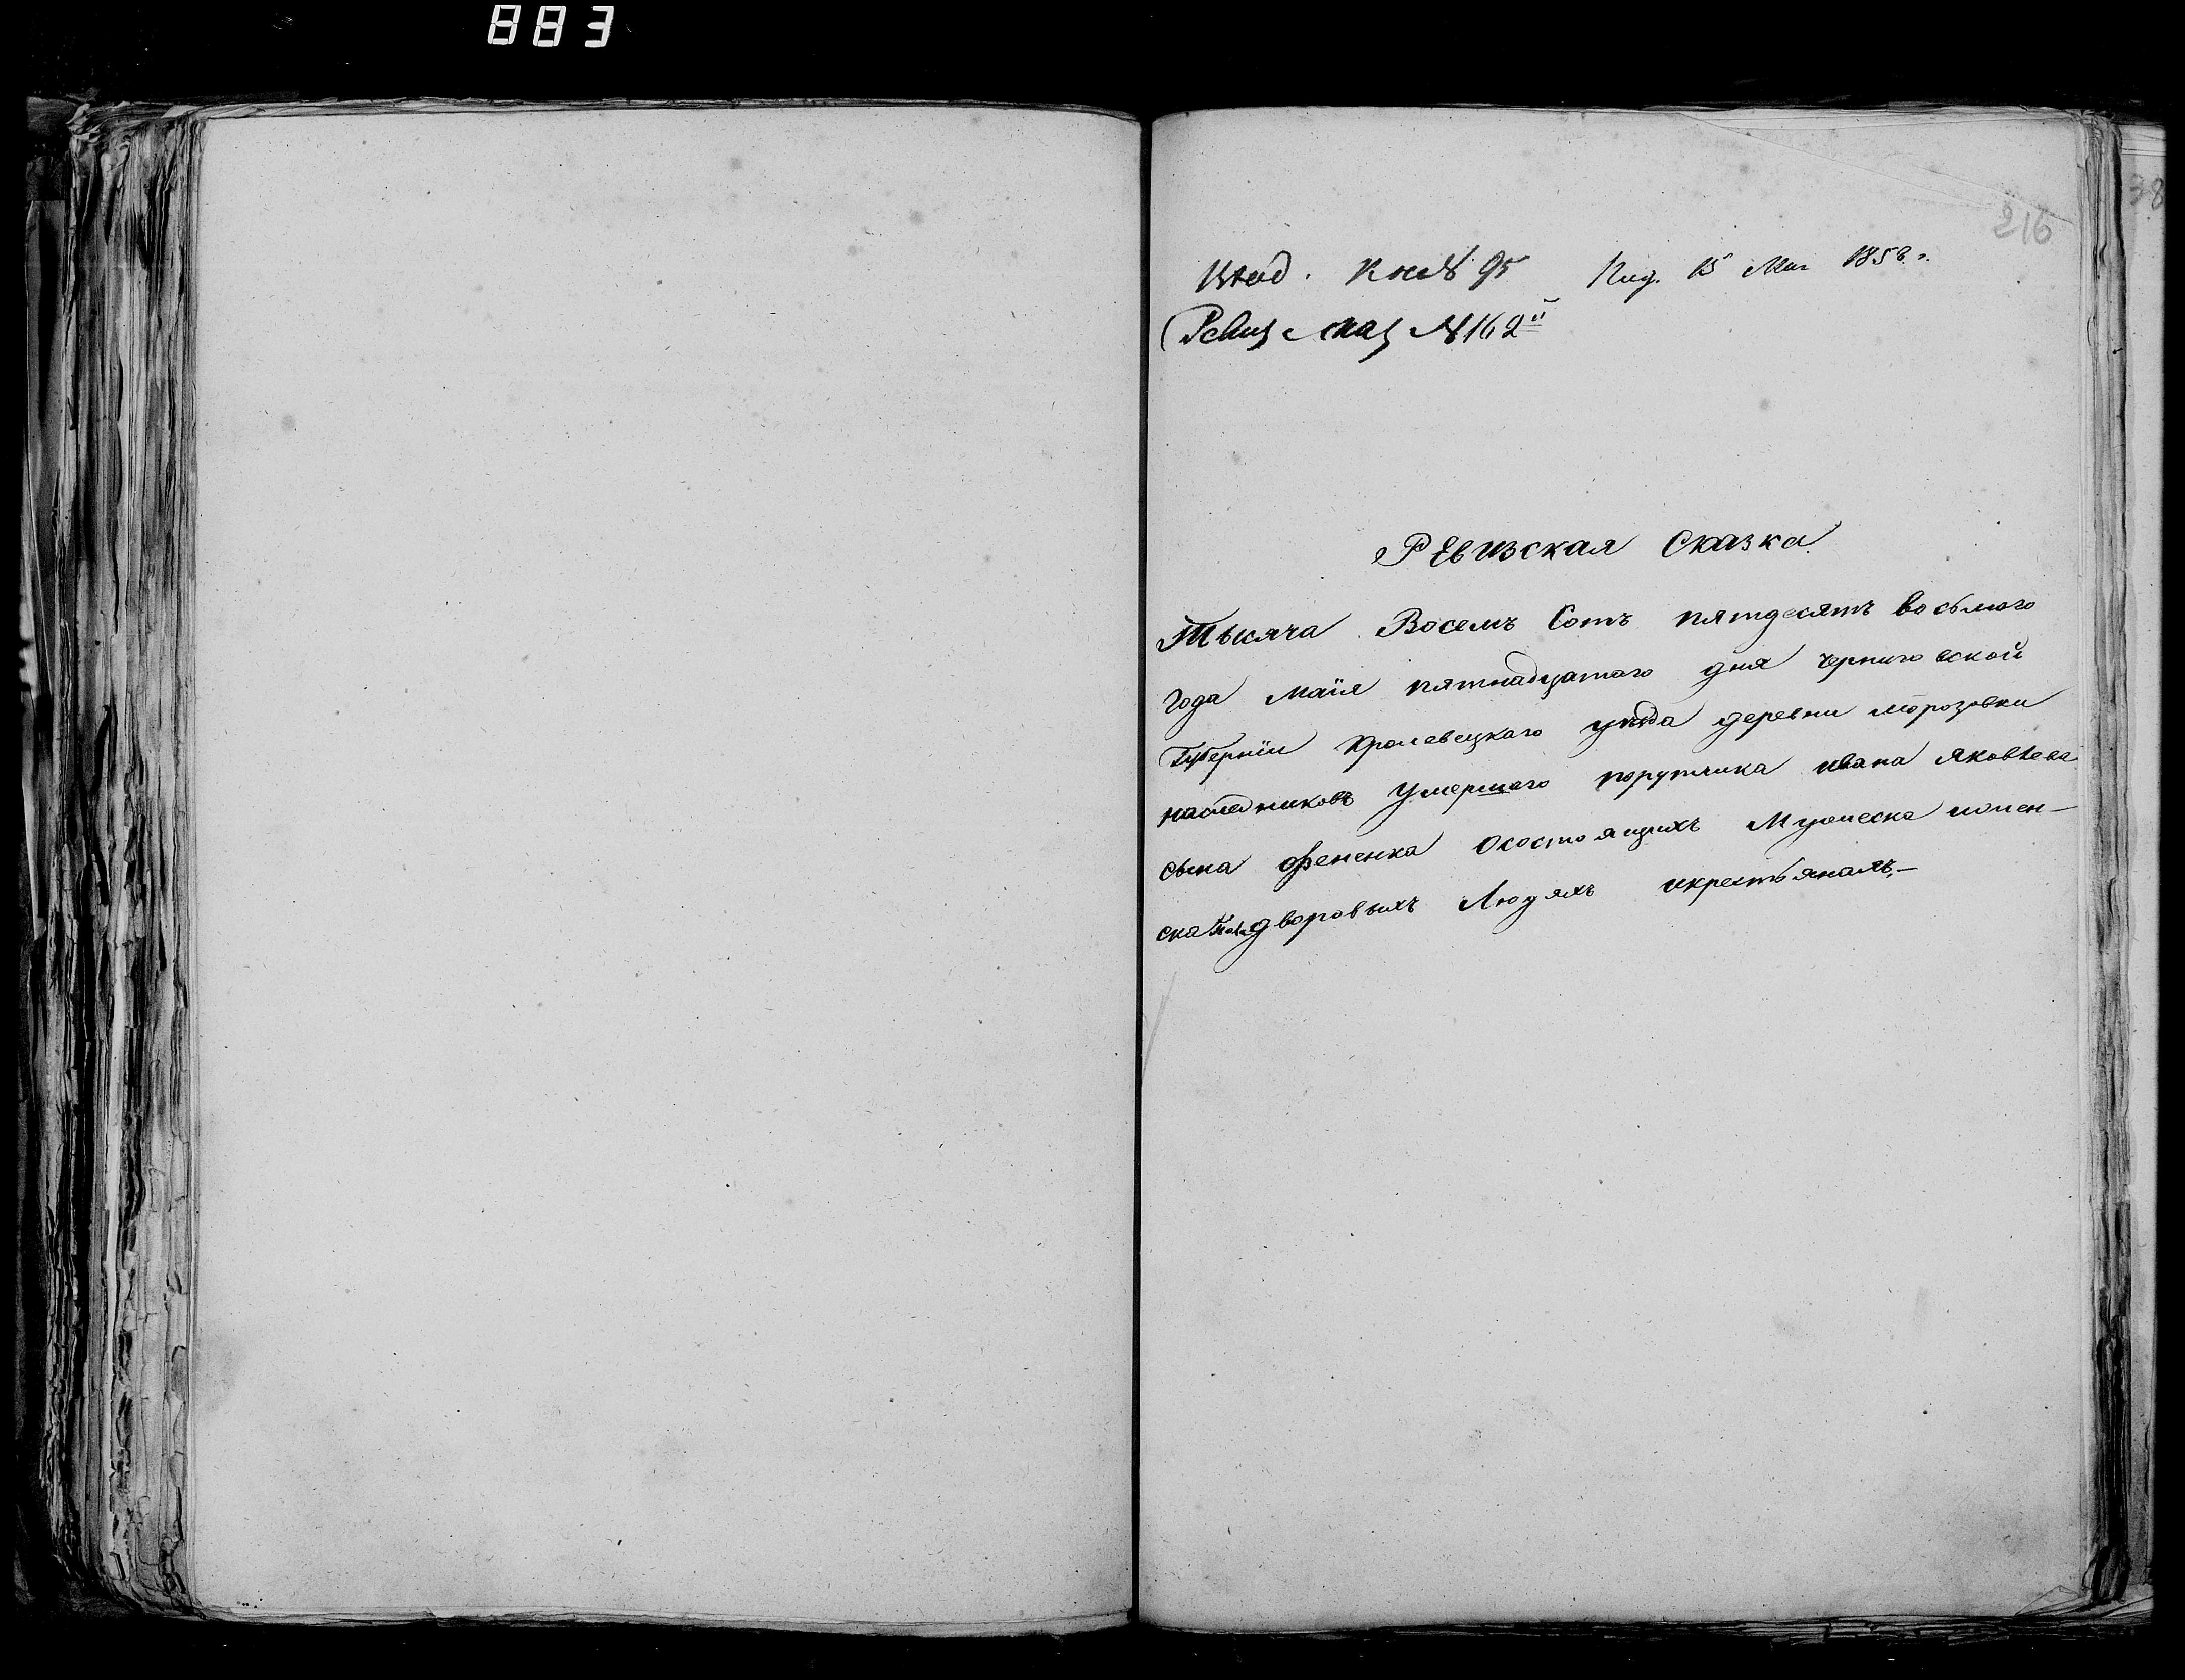 883
38
216
Вход. Кн № 95 Под. 15 Мая 1858 г.
Ревиз Сказ № 162й
Ревизская Сказка
Тысяча Восемъ Сотъ пятдесятъ восьмого
года маiя пятнадцатого дня черниговской
Губернiи Кролевецкаго уезда деревни морозовки
наследниковъ умершаго порутчика ивана яковлева
сына Фененка осостоящихъ Мужеска иженъ-
ска Пола дворовыхъ Людяхъ икрестьянахъ.-